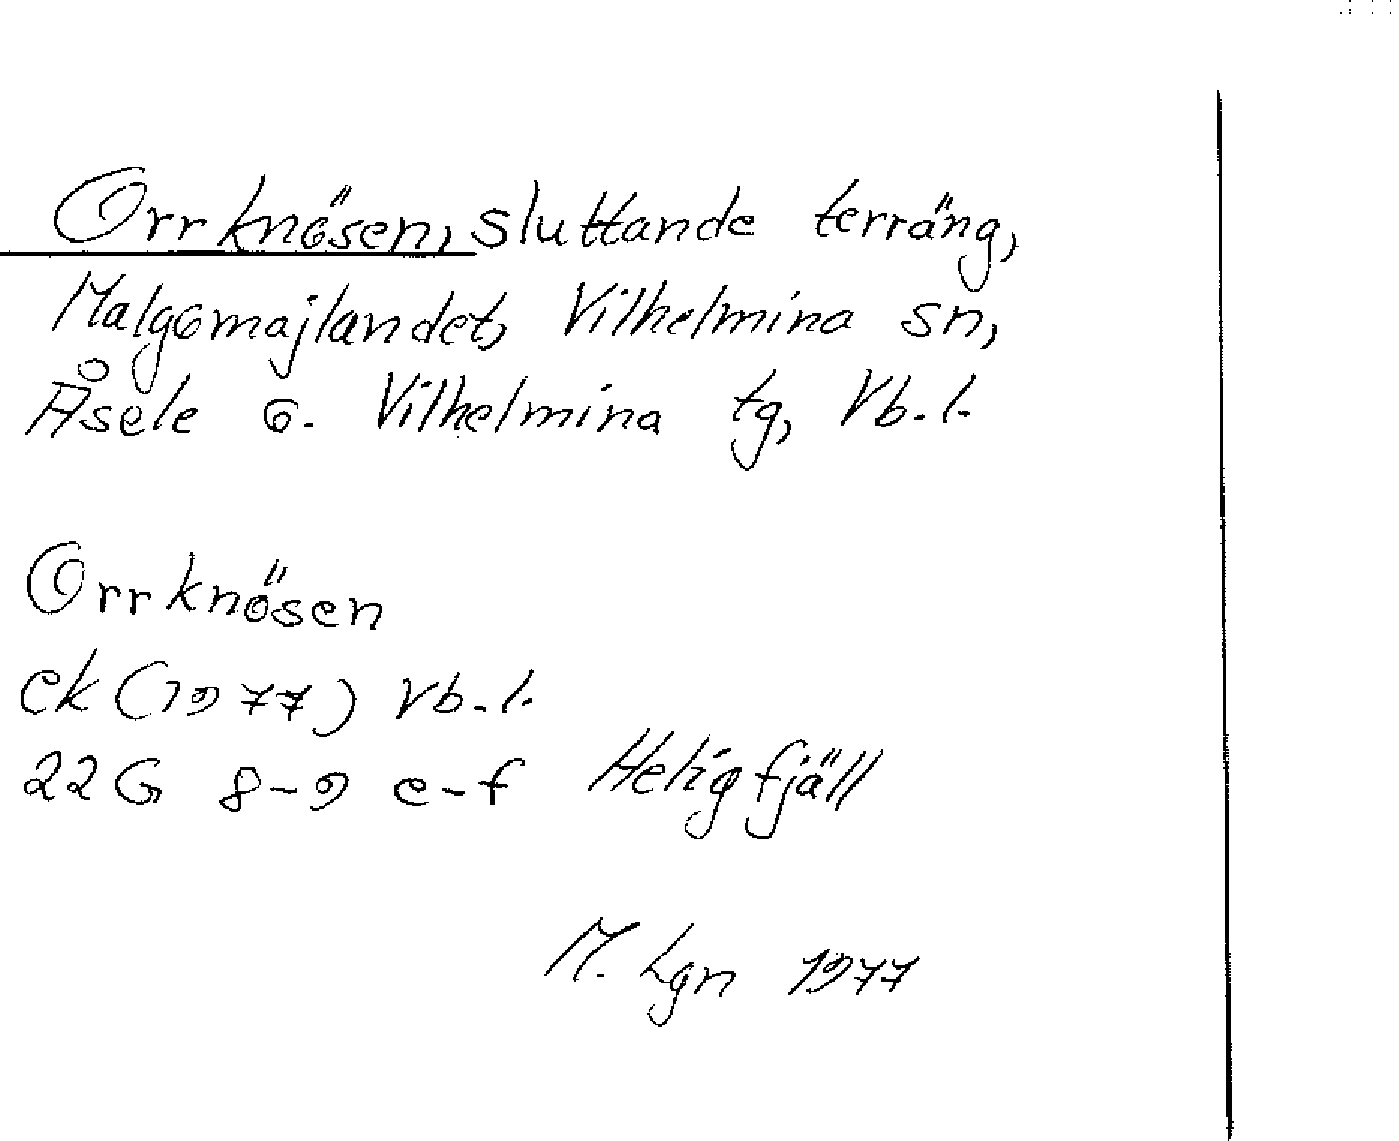 Orrknösen, sluttande terräng,
Malgomajlandet, Vilhelmina sn,
Åsele o. Vilhelmina tg, Vb.l.
Orrknösen
ek (1977) Vb.l.
22G 8-9 e-f Heligfjäll
M. Lgn 1977